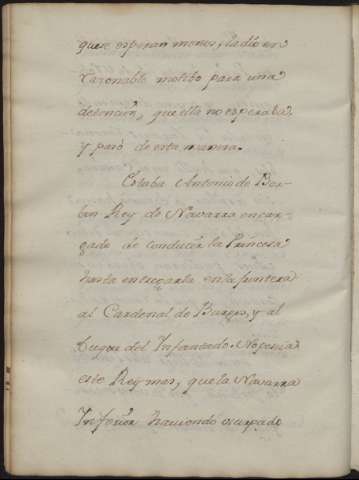 que se esperan menos, la dió un
razonable motibo para una
detencion, que ella no esperaba,
y paró de esta manera.
Estaba Antonio de Bor-
bon Rey de Navarra encar-
gado de conducir la Princesa
hasta entregarla en la frontera
al Cardenal de Burgos, y al
Duque del Infantado. No poseia
este Rey mas, que la Navarra
Inferior haviendo ocupado